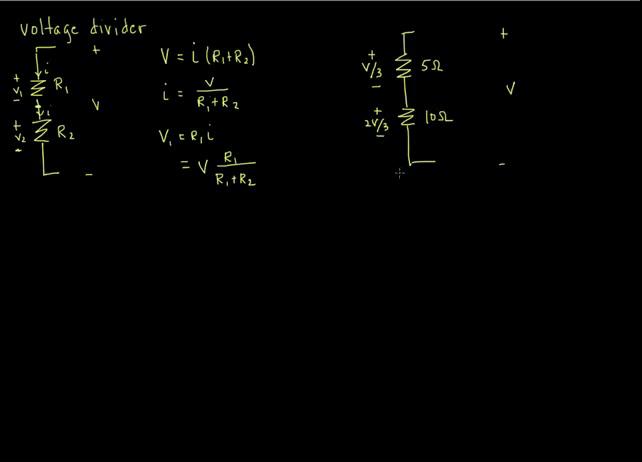 voltage divider
+
i
+
V₁
−
R₁
i
V
+
V₂
−
R₂
−
V = i (R₁+R₂)
i = V / (R₁+R₂)
V₁ = R₁ i
= V R₁ / (R₁+R₂)
+
+
V/3
−
5Ω
V
+
2V/3
−
10Ω
−